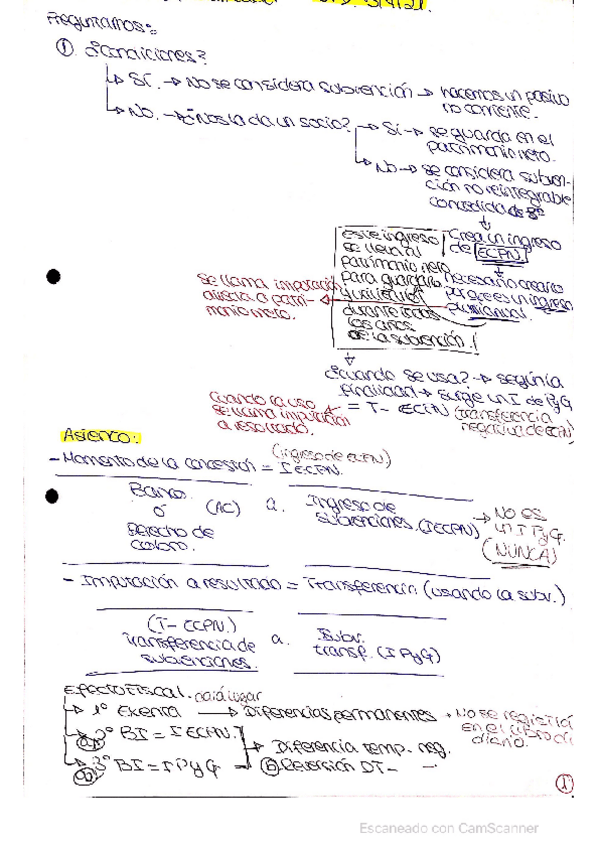 Preguntamos:
① ¿Condiciones?
↳ Sí. → No se considera subvención → hacemos un pasivo no corriente.
↳ No. → ¿Nos la da un socio? → Sí → se guarda en el patrimonio neto.
↳ No → se considera subvención no reintegrable concedida de 3º
↓
Crea un ingreso de ECPN.
↓
necesario crearlo porque es un ingreso plurianual
este ingreso se lleva al patrimonio neto para guardarlo
durante todos los años de la subvención.
se llama imputación directa a patrimonio neto.
↓
¿Cuando se usa? → según la finalidad → surge un I de PyG
= T- ECPN (transferencia negativa de ECPN)
Cuando la uso se llama imputación a resultado.
Asiento:
- Momento de la concesión = I ECPN. (ingreso de ECPN)
Banco ó derecho de cobro. (AC) a. Ingreso de subvenciones. (IECPN) → NO es un I PyG. (NUNCA)
- Imputación a resultado = Transferencia (usando la subv.)
(T- ECPN.) transferencia de subvenciones. a. Subv. transf. (I PyG)
Efecto Fiscal.
↳ 1º Exenta → Diferencias permanentes → No se registra en el libro diario.
↳ 2º BI = I ECPN.
↳ 3º BI = I PyG
↳ Diferencia temp. neg.
Reversión DT-
①
Escaneado con CamScanner